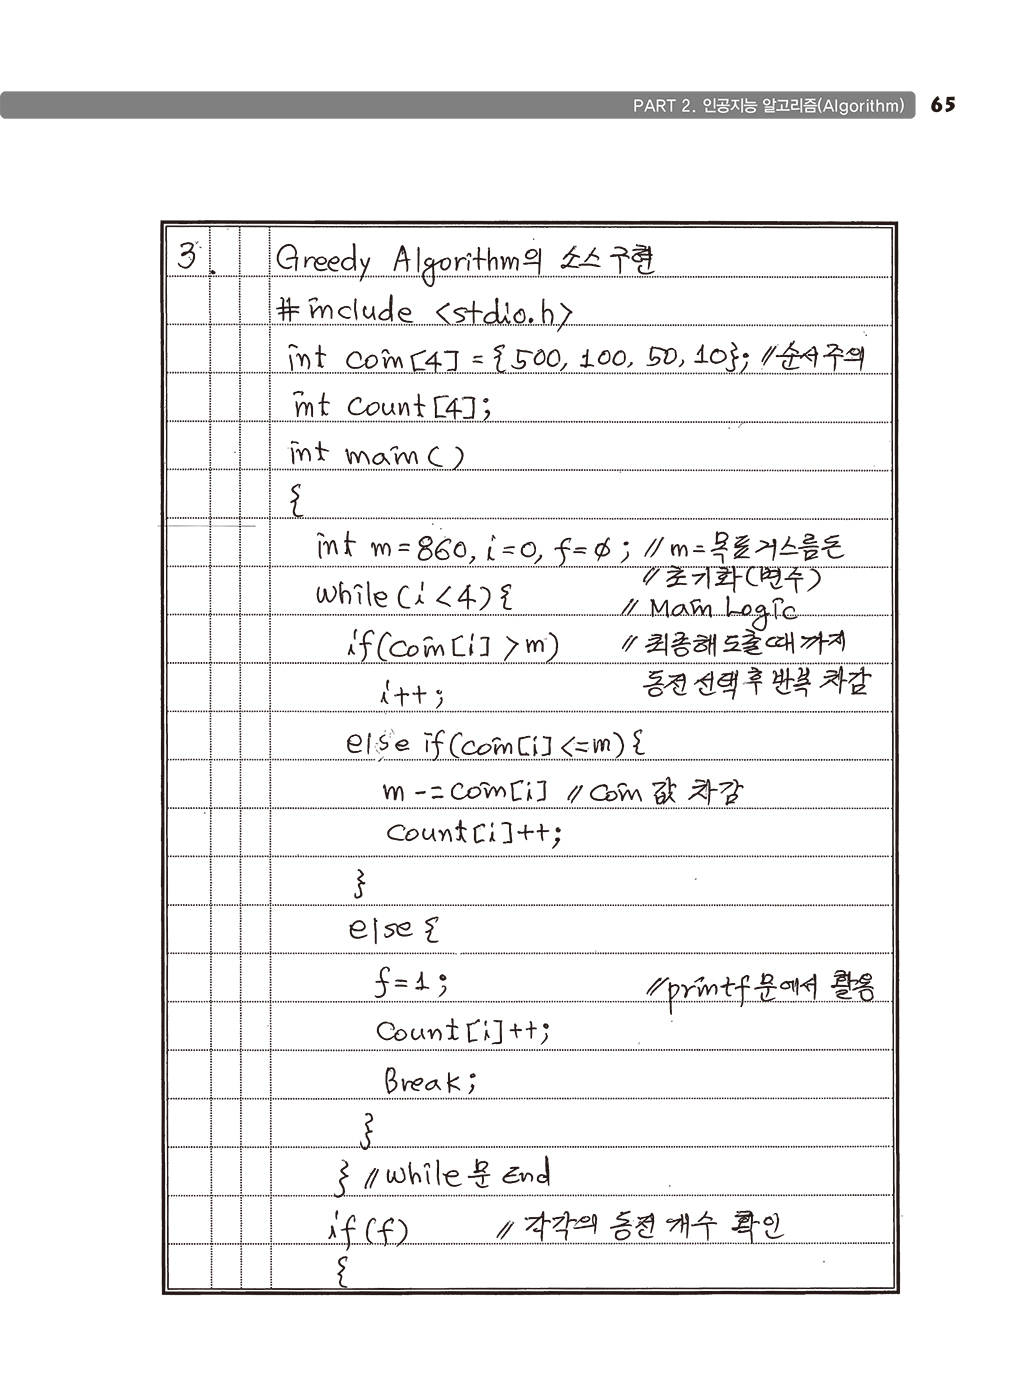 PART 2. 인공지능 알고리즘(Algorithm) 65
3. Greedy Algorithm의 소스 구현
#include <stdio.h>
int coin[4] = {500, 100, 50, 10}; //순서주의
int count[4];
int main()
{
int m=860, i=0, f=0; //m=목표거스름돈
//초기화(변수)
while(i<4){ //Main Logic
if(coin[i] >m) //최종해 도출때 까지
i++; 동전 선택 후 반복 차감
else if(coin[i]<=m){
m -=coin[i] //Coin 값 차감
count[i]++;
}
else {
f=1; //printf 문에서 활용
Count[i]++;
Break;
}
} //while 문 End
if(f) //각각의 동전 개수 확인
{